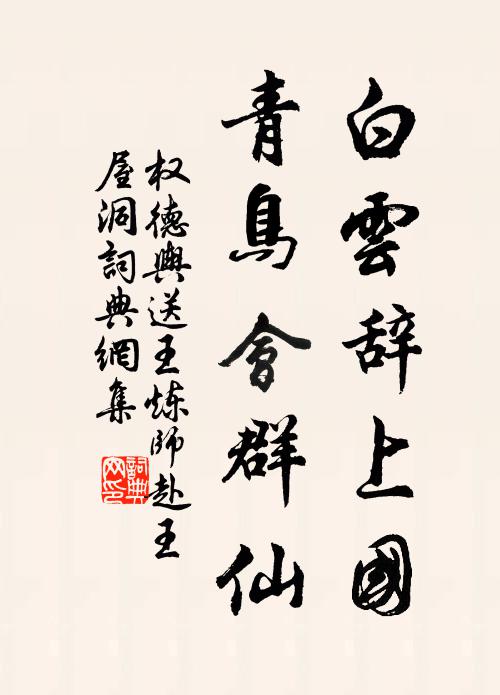 白雲辞上國
青鳥會群仙
权德輿送王炼師赴王
屋洞詞典網集
詞典
网印